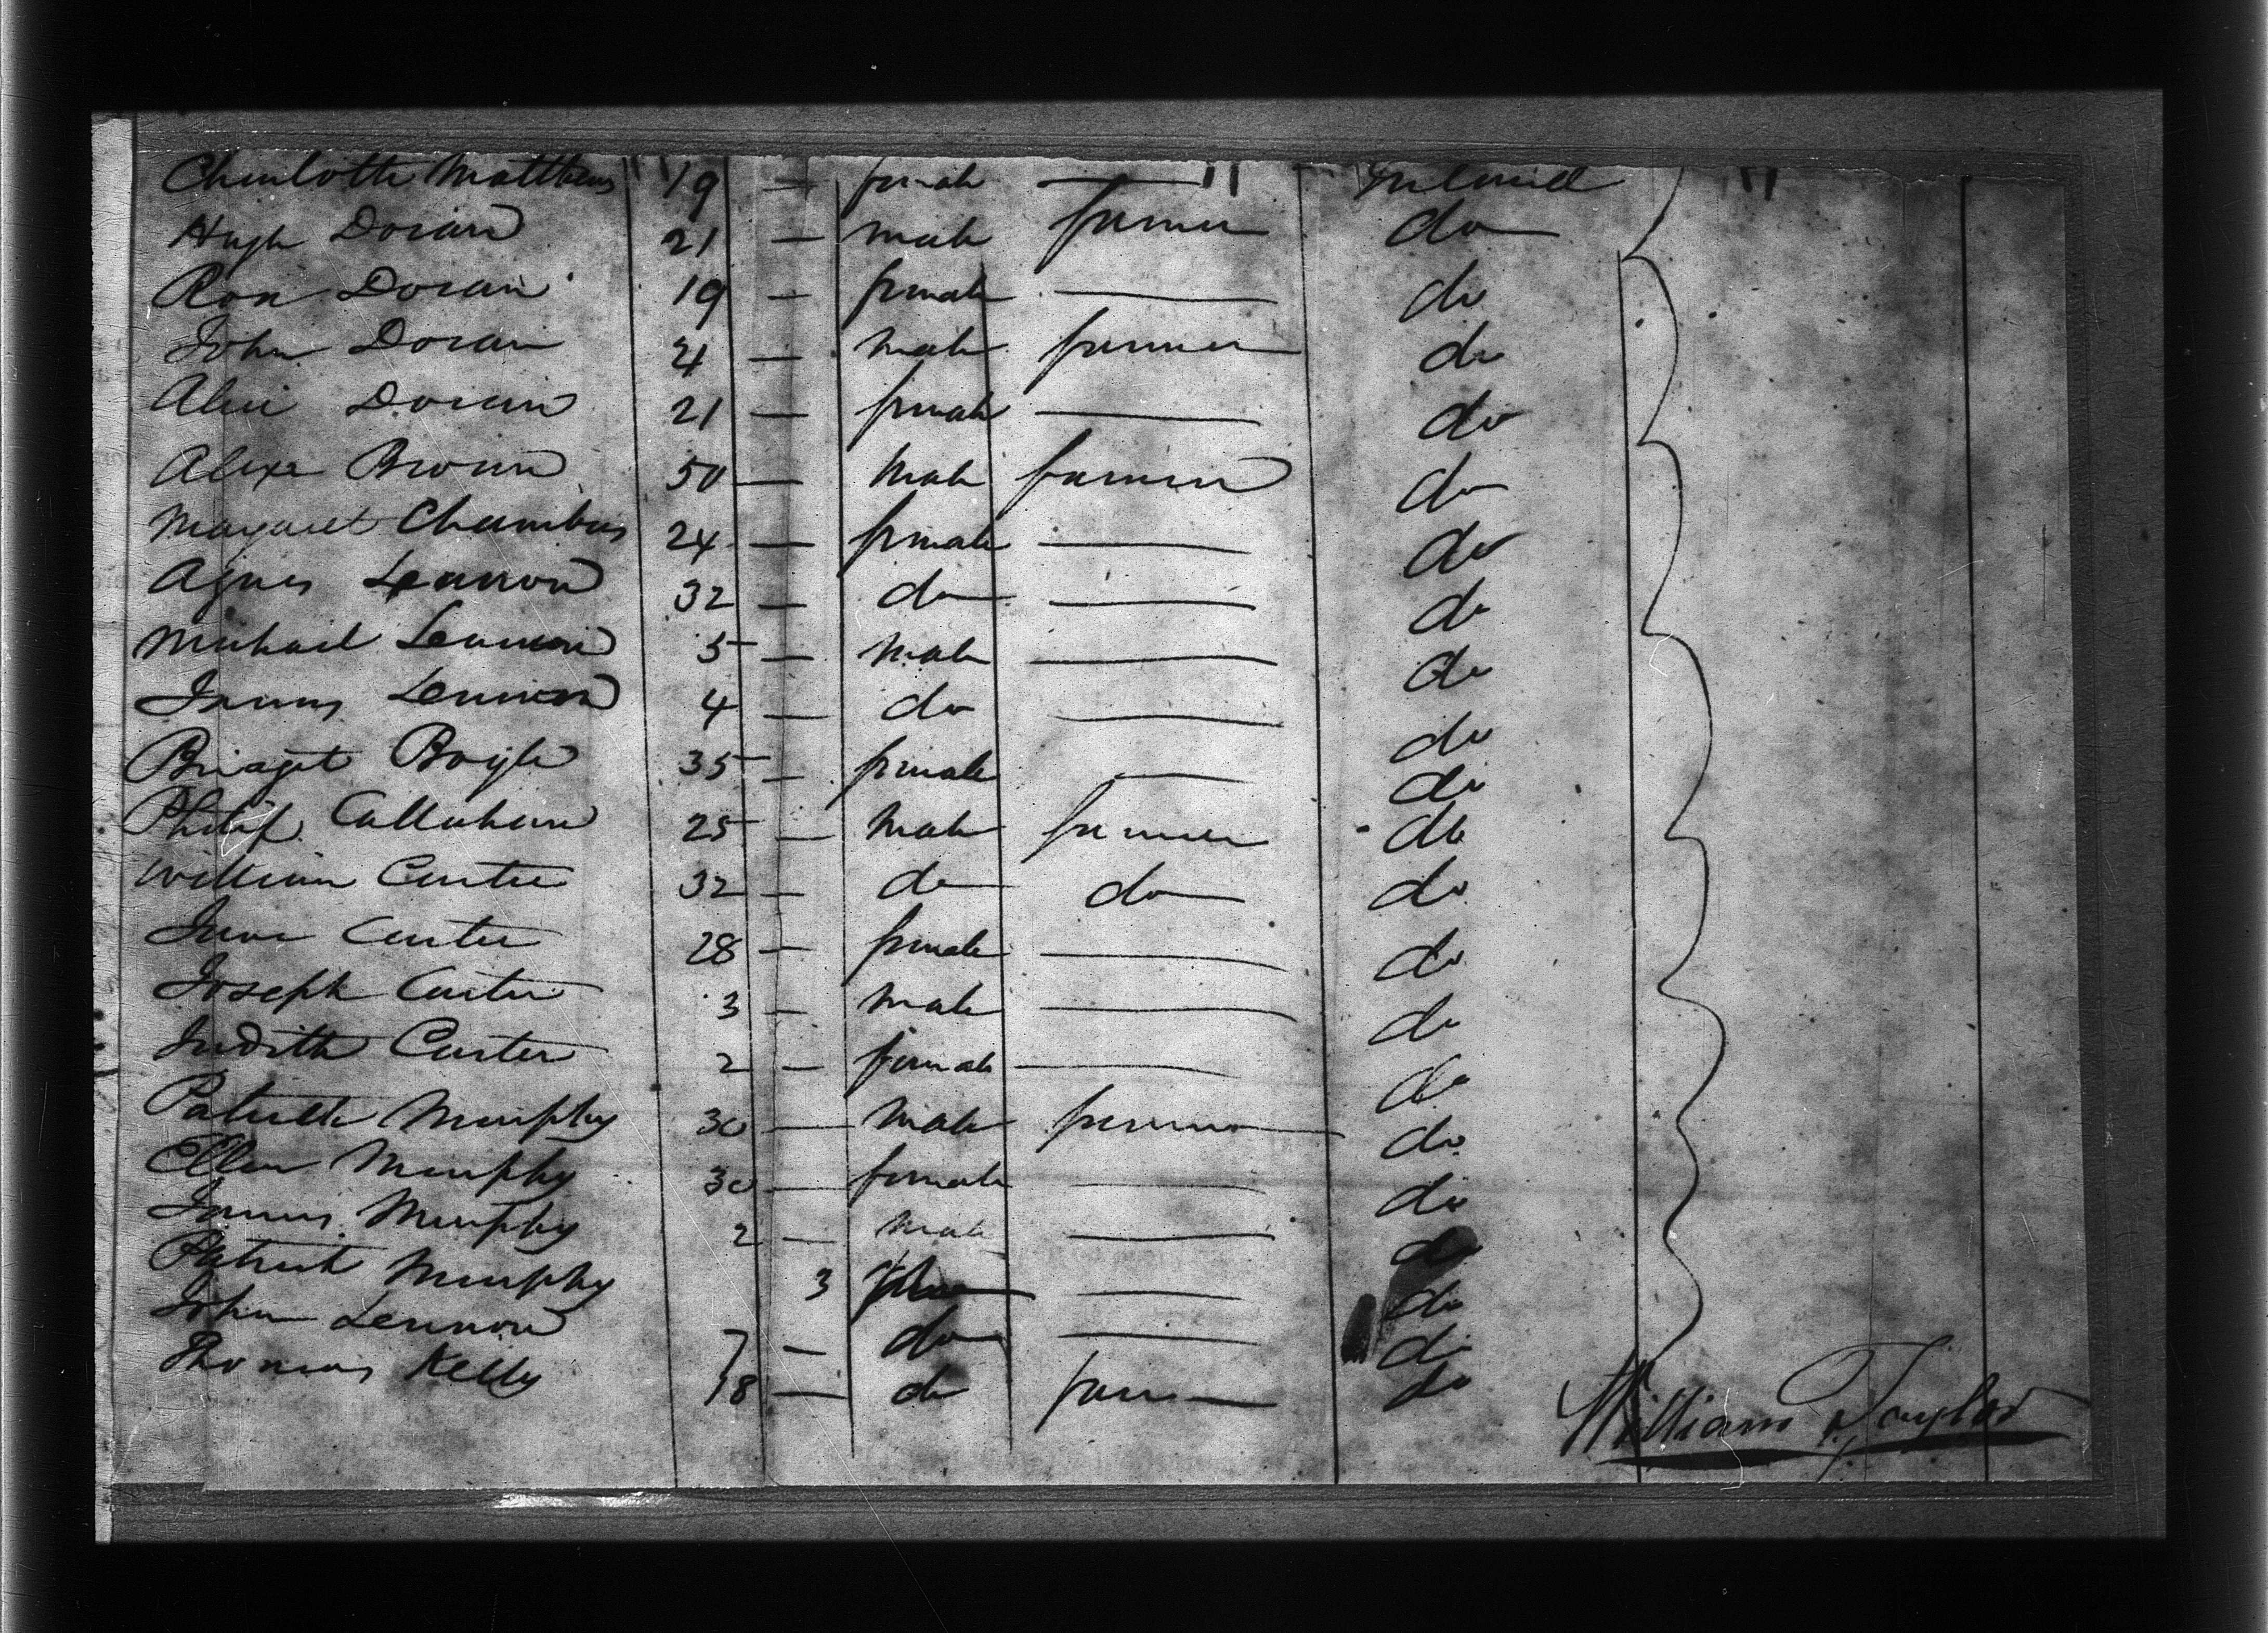 Charlotte Matthews 19 — female — Ireland
Hugh Doran 21 — male farmer do
Rosa Doran 19 — female — do
John Doran 4 — male farmer do
Alice Doran 21 — female — do
Alexr Brown 50 — male farmer do
Margaret Chambers 24 — female — do
Agnes Lennon 32 — do — do
Michael Lennon 5 — male — do
James Lennon 4 — do — do
Bridget Boyle 35 — female — do
Philip Callahan 25 — male farmer do
William Carter 32 — do do do
Jane Carter 28 — female — do
Joseph Carter 3 — male — do
Judith Carter 2 — female — do
Patrick Murphy 30 — male farmer do
Ellen Murphy 30 — female — do
James Murphy 2 — male — do
Patrick Murphy 3 — do
John Lennon 7 — do — do
Thomas Kelly 18 — do farm do
William Taylor